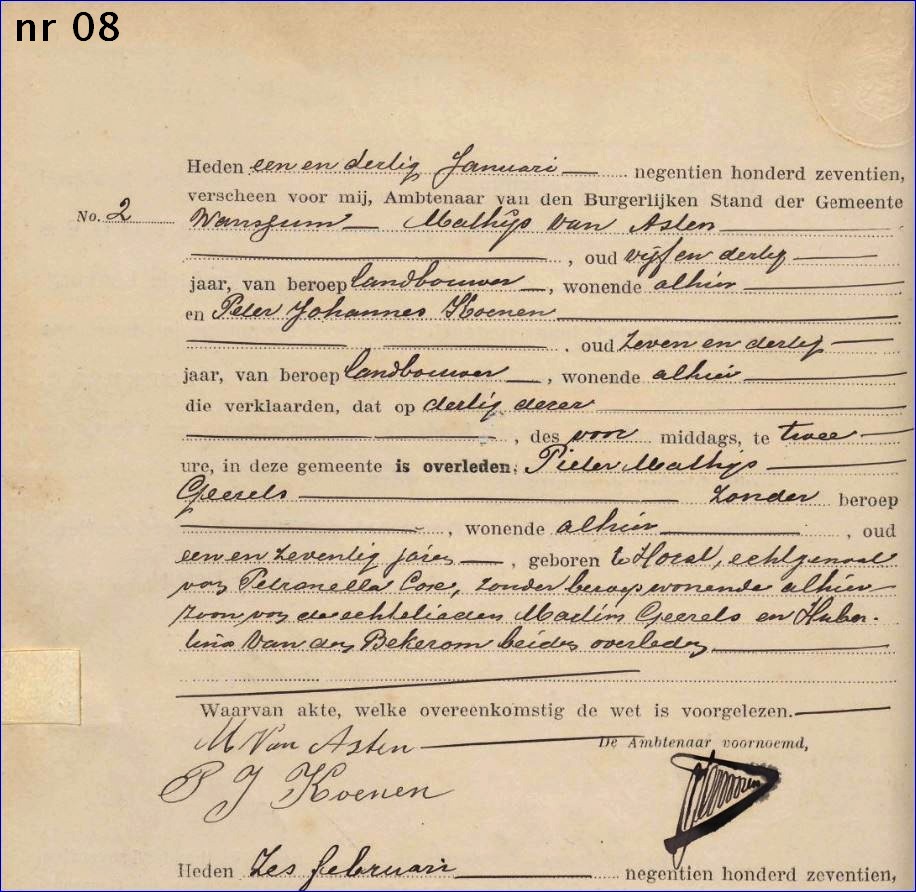 nr 08
Heden een en dertig Januari negentien honderd zeventien,
verscheen voor mij, Ambtenaar van den Burgerlijken Stand der Gemeente
No. 2
Wanssum Mathijs van Asten
, oud vijf en dertig
jaar, van beroep landbouwer, wonende alhier
en Peter Johannes Koenen
, oud zeven en dertig
jaar, van beroep landbouwer, wonende alhier
die verklaarden, dat op dertig dezer
, des voor middags, te twee
ure, in deze gemeente is overleden, Pieter Mathijs
Geerets zonder beroep
, wonende alhier, oud
een en zeventig jaren, geboren te Horst, echtgenoot
van Petronella Cox, zonder beroep wonende alhier
zoon van de echtelieden Martin Geerets en Huber-
tina Van den Bekerom beiden overleden
Waarvan akte, welke overeenkomstig de wet is voorgelezen.
M Van Asten
De Ambtenaar voornoemd,
P J Koenen
Heden Zes februari negentien honderd zeventien,